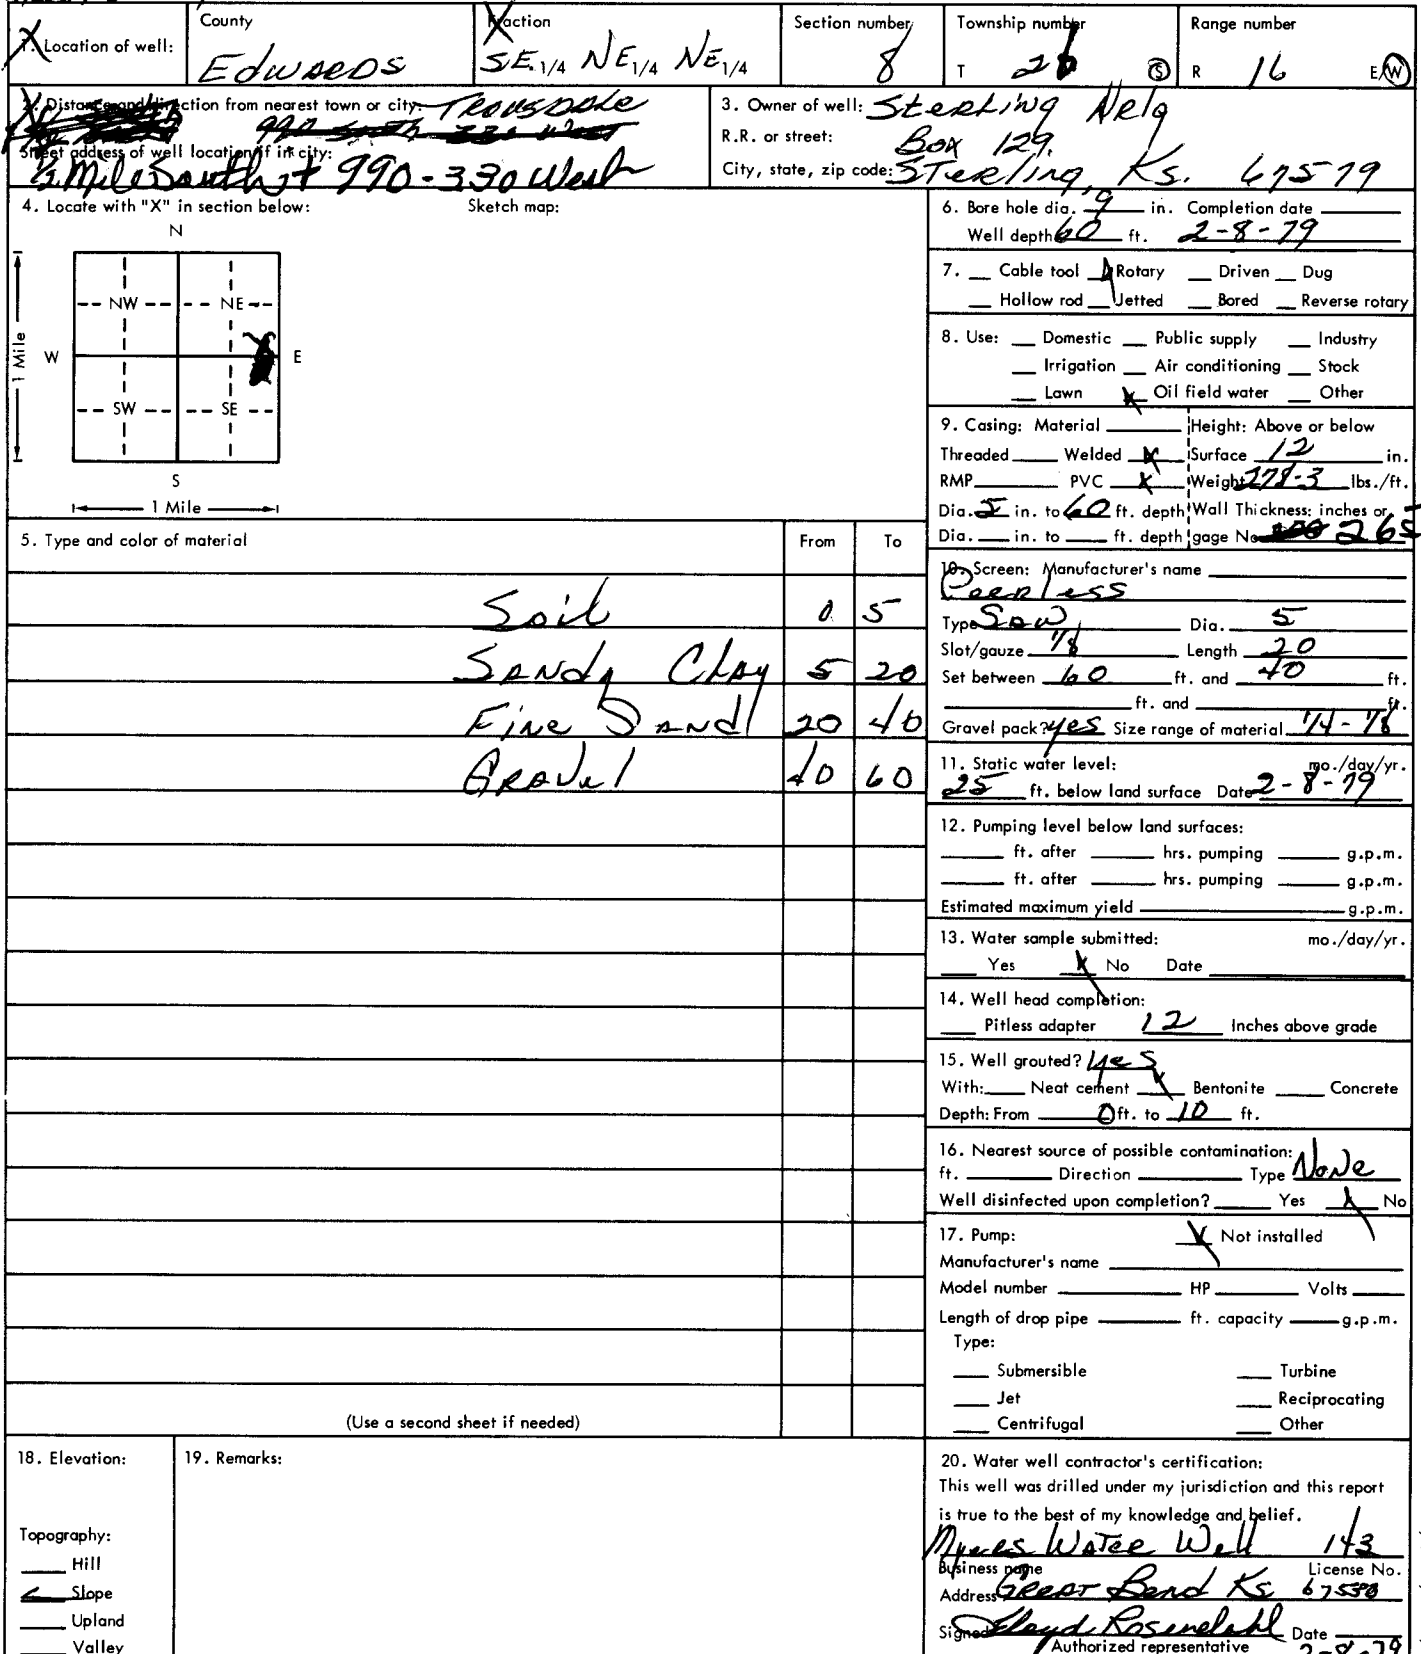 1. Location of well:
County
Edwards
Fraction
SE 1/4 NE 1/4 NE 1/4
Section number
8
Township number
T 26 S
Range number
R 16 E/W
2. Distance and direction from nearest town or city: Trousdale
990 South 330 West
Street address of well location if in city:
1/2 Mile South + 990-330 West
3. Owner of well: Sterling Nelg
R.R. or street: Box 129.
City, state, zip code: Sterling, Ks. 67579
4. Locate with "X" in section below:
Sketch map:
N
NW NE
W E
1 Mile
SW SE
S
1 Mile
6. Bore hole dia. 9 in. Completion date
Well depth 60 ft. 2-8-79
7. Cable tool Rotary Driven Dug
Hollow rod Jetted Bored Reverse rotary
8. Use: Domestic Public supply Industry
Irrigation Air conditioning Stock
Lawn X Oil field water Other
9. Casing: Material Height: Above or below
Threaded Welded X Surface 12 in.
RMP PVC X Weight 278-3 lbs./ft.
Dia. 5 in. to 60 ft. depth Wall Thickness: inches or
Dia. in. to ft. depth gage No 265
5. Type and color of material From To
Soil 0 5
Sandy Clay 5 20
Fine Sand 20 40
Gravel 40 60
(Use a second sheet if needed)
10. Screen: Manufacturer's name
Peerless
Type Saw Dia. 5
Slot/gauze 1/8 Length 20
Set between 60 ft. and 40 ft.
ft. and ft.
Gravel pack? yes Size range of material 1/4 - 1/8
11. Static water level: mo./day/yr.
25 ft. below land surface Date 2-8-79
12. Pumping level below land surfaces:
ft. after hrs. pumping g.p.m.
ft. after hrs. pumping g.p.m.
Estimated maximum yield g.p.m.
13. Water sample submitted: mo./day/yr.
Yes X No Date
14. Well head completion:
Pitless adapter 12 Inches above grade
15. Well grouted? yes
With: Neat cement X Bentonite Concrete
Depth: From 0 ft. to 10 ft.
16. Nearest source of possible contamination:
ft. Direction Type None
Well disinfected upon completion? Yes X No
17. Pump: X Not installed
Manufacturer's name
Model number HP Volts
Length of drop pipe ft. capacity g.p.m.
Type:
Submersible Turbine
Jet Reciprocating
Centrifugal Other
18. Elevation:
Topography:
Hill
Slope
Upland
Valley
19. Remarks:
20. Water well contractor's certification:
This well was drilled under my jurisdiction and this report
is true to the best of my knowledge and belief.
Myers Water Well 143
Business name License No.
Address Great Bend Ks 67530
Signed Lloyd Rosendahl Date
Authorized representative 2-8-79